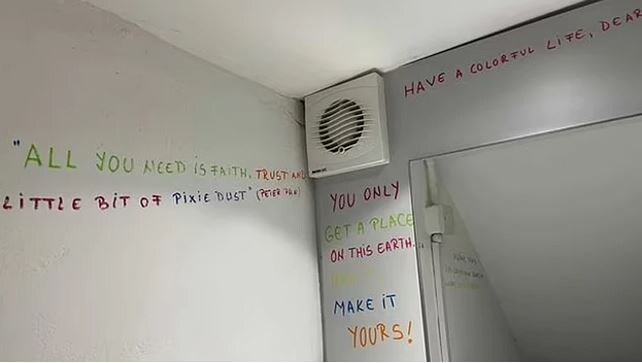 "ALL YOU NEED IS FAITH, TRUST AND
LITTLE BIT OF PIXIE DUST" (PETER PAN)
HAVE A COLORFUL LIFE, DEAR
YOU ONLY
GET A PLACE
ON THIS EARTH..
MAKE IT
YOURS!